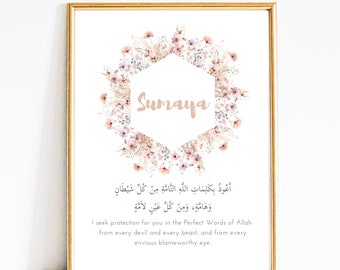 Sumaya
أَعُوذُ بِكَلِمَاتِ اللَّهِ التَّامَّةِ مِنْ كُلِّ شَيْطَانٍ
وَهَامَّةٍ، وَمِنْ كُلِّ عَيْنٍ لَامَّةٍ
I seek protection for you in the Perfect Words of Allah
from every devil and every beast, and from every
envious blameworthy eye.